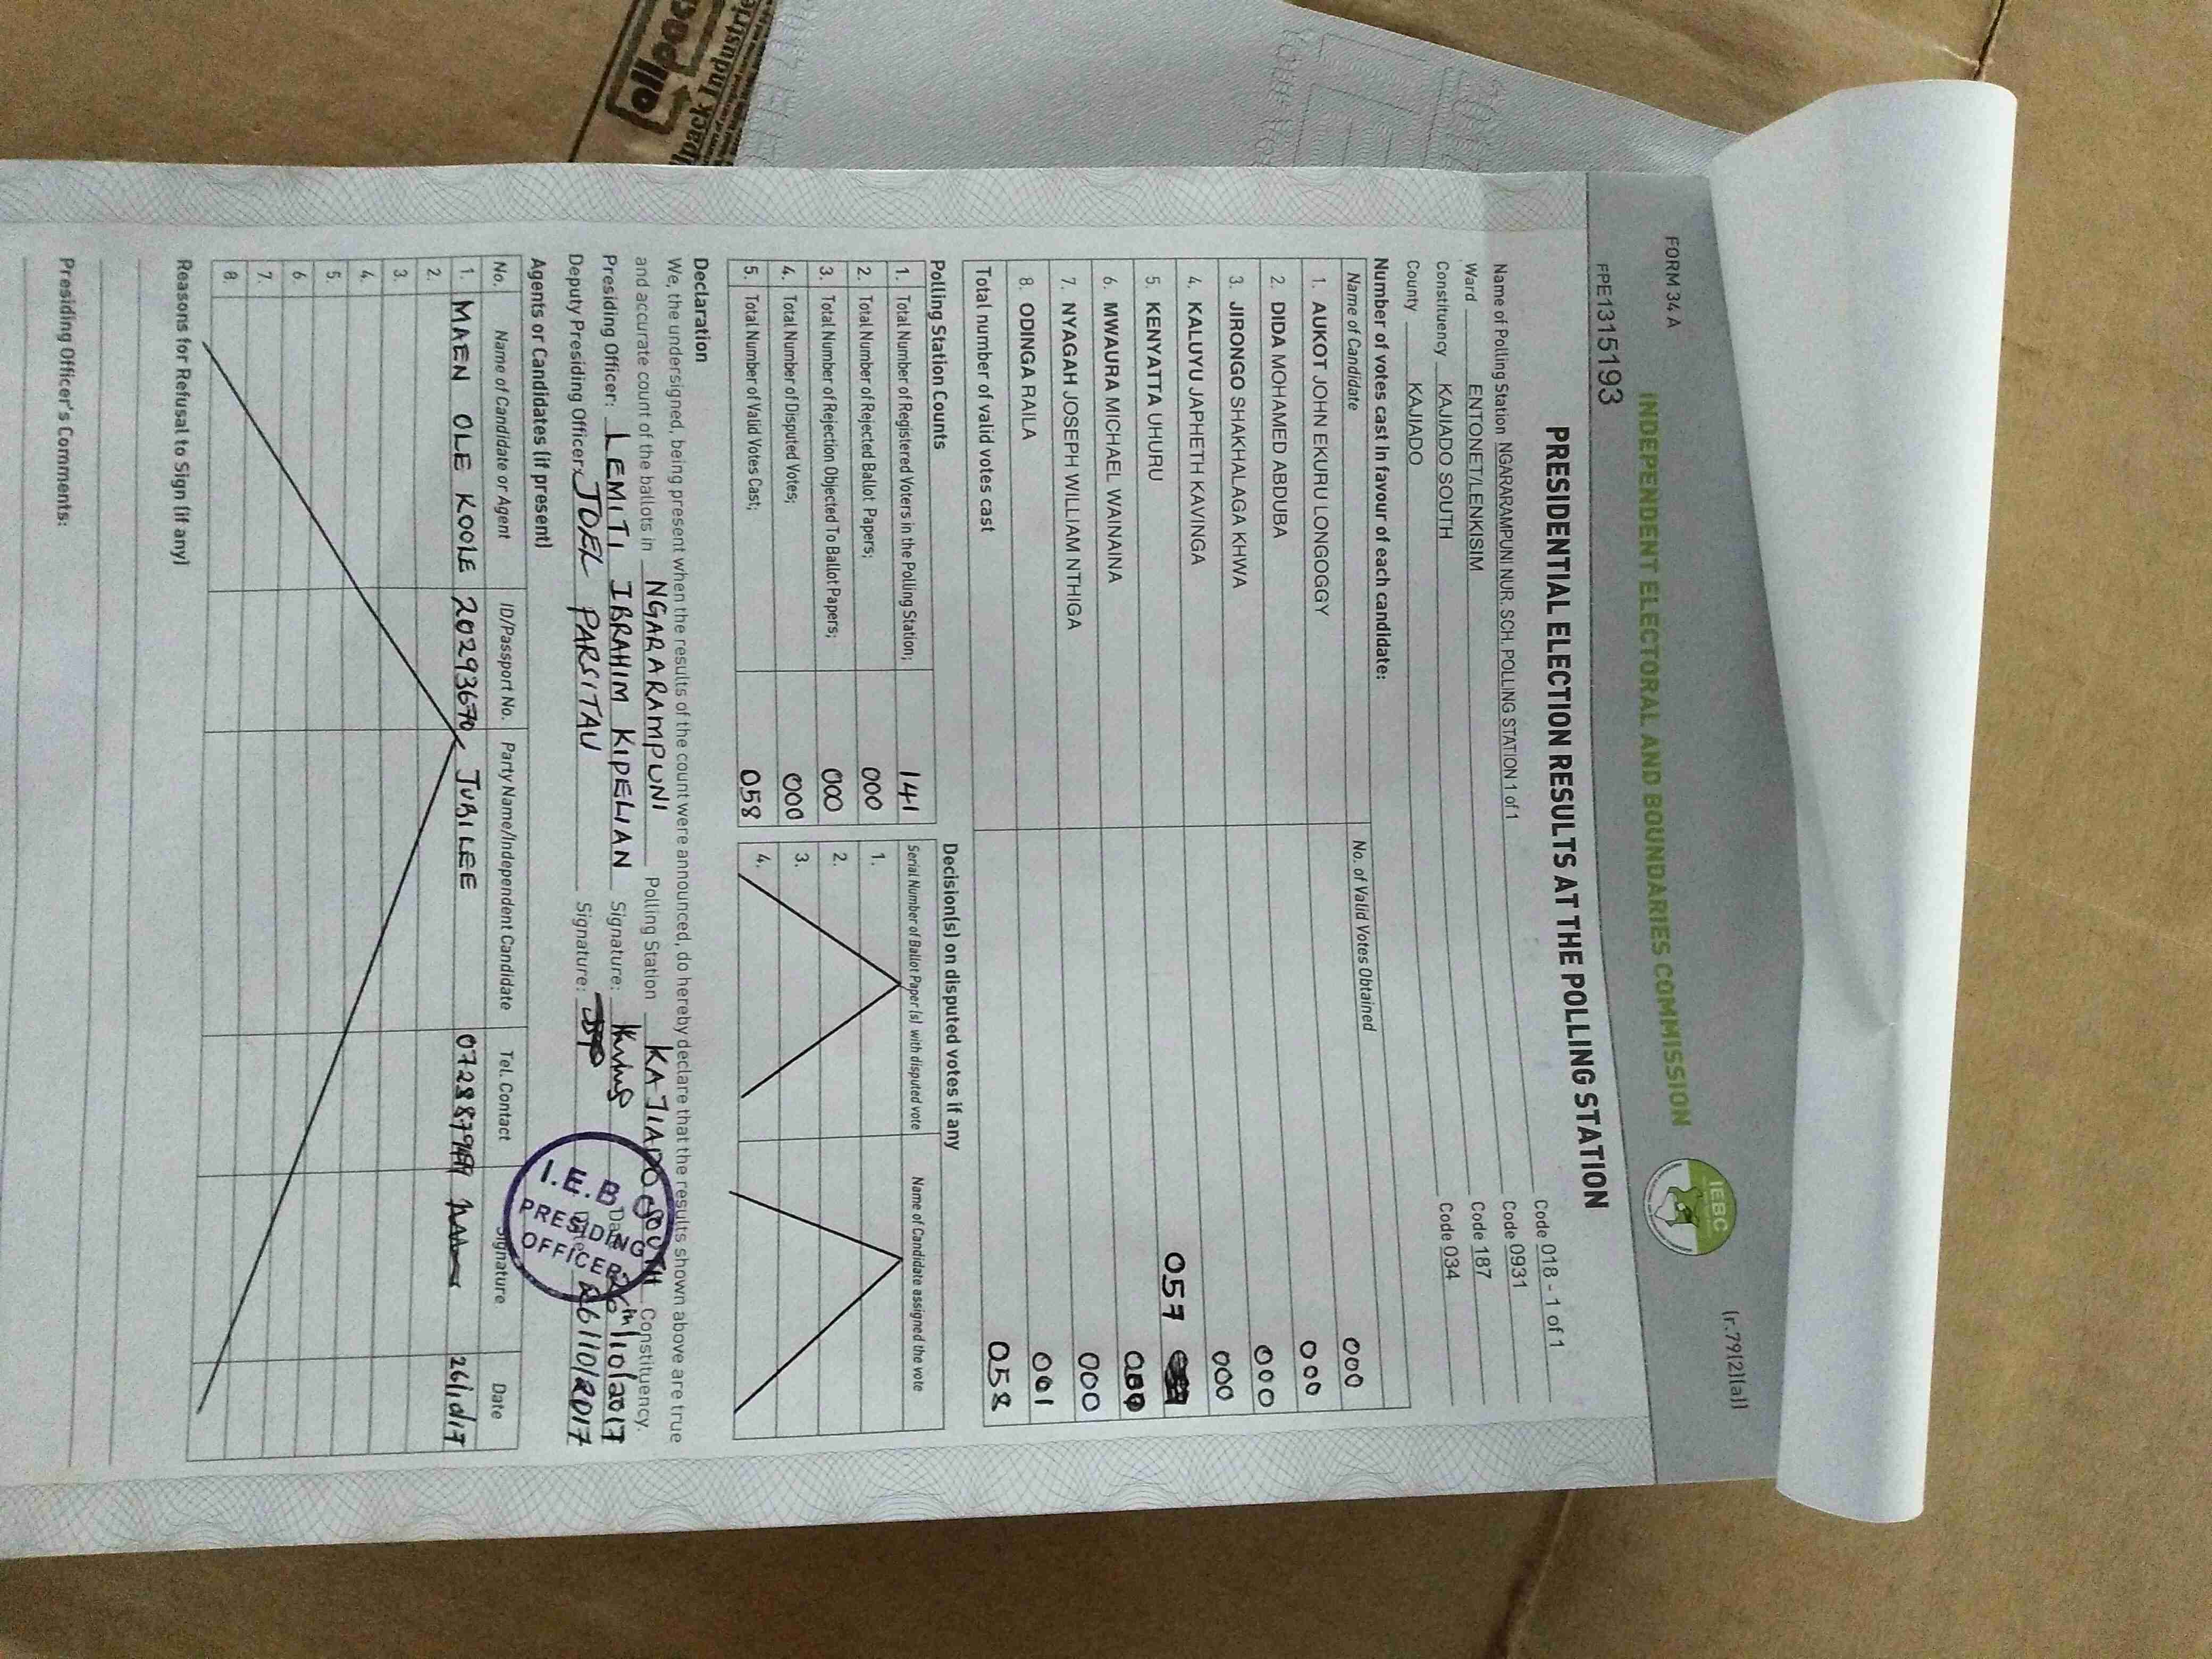 FORM 34 A
(r.79(2)(a))
INDEPENDENT ELECTORAL AND BOUNDARIES COMMISSION
IEBC
FPE1315193
PRESIDENTIAL ELECTION RESULTS AT THE POLLING STATION
Name of Polling Station NGARARAMPUNI NUR. SCH. POLLING STATION 1 of 1 Code 018 - 1 of 1
Ward ENTONET/LENKISIM Code 0931
Constituency KAJIADO SOUTH Code 187
County KAJIADO Code 034
Number of votes cast in favour of each candidate:
Name of Candidate No. of Valid Votes Obtained
1. AUKOT JOHN EKURU LONGOGGY 000
2. DIDA MOHAMED ABDUBA 000
3. JIRONGO SHAKHALAGA KHWA 000
4. KALUYU JAPHETH KAVINGA 000
5. KENYATTA UHURU 057
6. MWAURA MICHAEL WAINAINA 000
7. NYAGAH JOSEPH WILLIAM NTHIGA 000
8. ODINGA RAILA 001
Total number of valid votes cast 058
Polling Station Counts
1. Total Number of Registered Voters in the Polling Station; 141
2. Total Number of Rejected Ballot Papers; 000
3. Total Number of Rejection Objected To Ballot Papers; 000
4. Total Number of Disputed Votes; 000
5. Total Number of Valid Votes Cast; 058
Decision(s) on disputed votes if any
Serial Number of Ballot Paper (s) with disputed vote Name of Candidate assigned the vote
1.
2.
3.
4.
Declaration
We, the undersigned, being present when the results of the count were announced, do hereby declare that the results shown above are true
and accurate count of the ballots in NGARARAMPUNI Polling Station KAJIADO SOUTH Constituency.
Presiding Officer: LEMITI IBRAHIM KIPELIAN Signature: Date 26th/10/2017
Deputy Presiding Officer: JOEL PARSITAU Signature: Date 26/10/2017
I.E.B.C
PRESIDING
OFFICER
Agents or Candidates (if present)
No. Name of Candidate or Agent ID/Passport No. Party Name/Independent Candidate Tel. Contact Signature Date
1. MAEN OLE KOOLE 20293670 JUBILEE 26/10/17
2.
3.
4.
5.
6.
7.
8.
Reasons for Refusal to Sign (if any)
Presiding Officer's Comments:
allpack
Industries